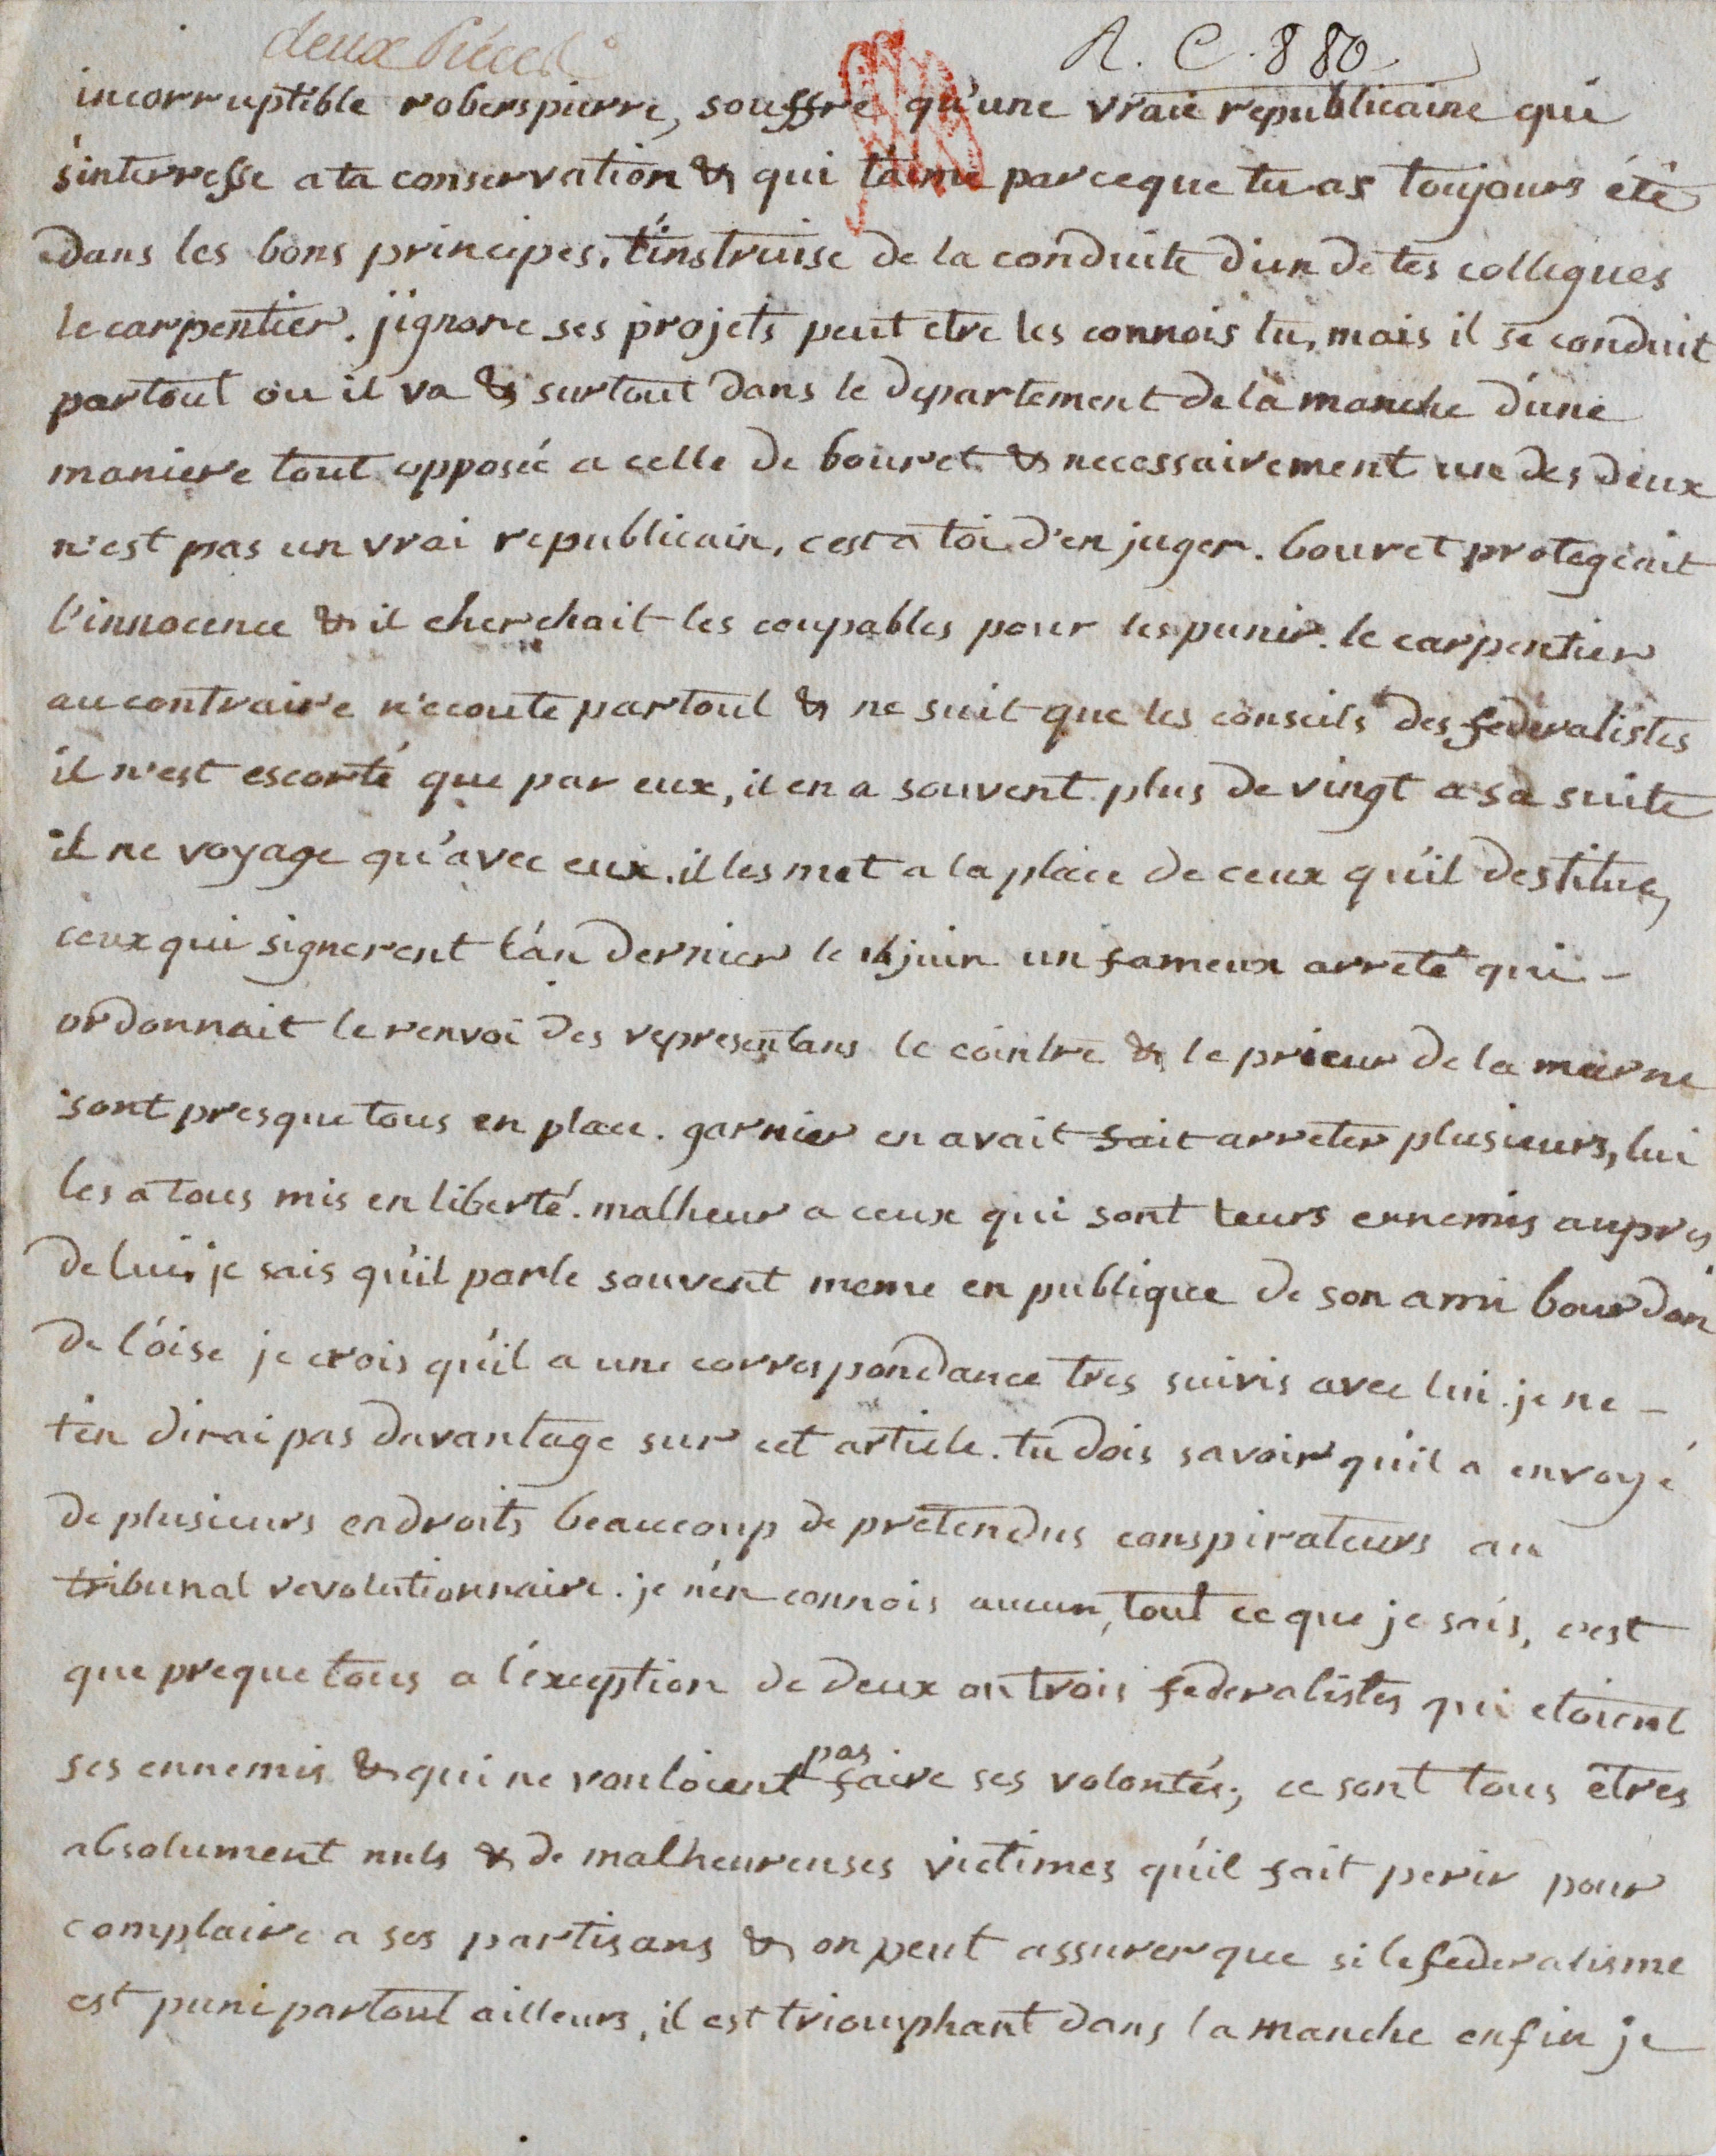 deux Pièces
R. C. 880
incorruptible roberspierre, souffre qu'une vraie republicaine qui
s'interresse a ta conservation & qui t'aime parceque tu as toujours été
dans les bons principes, t'instruise de la conduite d'un de tes collegues
le carpentier. j'ignore ses projets peut etre les connois tu, mais il se conduit
partout ou il va & surtout dans le departement de la manche d'une
maniere tout opposée a celle de bouret & necessairement un des deux
n'est pas un vrai republicain, c'est a toi d'en juger. bouret protegeait
l'innocence & il cherchait les coupables pour les punir. le carpentier
au contraire n'ecoute partout & ne suit que les conseils des federalistes
il n'est escorté que par eux, il en a souvent plus de vingt a sa suite
il ne voyage qu'avec eux. il les met a la place de ceux qu'il destitue,
ceux qui signerent l'an dernier le juin un fameux arreté qui -
ordonnait le renvoi des representans le cointre & le prieur de la marne
sont presque tous en place. garnier en avait fait arreter plusieurs, lui
les a tous mis en liberté. malheur a ceux qui sont leurs ennemis aupres
de lui. je sais qu'il parle souvent meme en publique de son ami bourdon
de l'oise je crois qu'il a une correspondance tres suivis avec lui. je ne -
t'en dirai pas davantage sur cet article. tu dois savoir qu'il a envoyé
de plusieurs endroits beaucoup de pretendus conspirateurs au
tribunal revolutionnaire. je n'en connois aucun, tout ce que je sais, c'est
que preque tous a l'exception de deux ou trois federalistes qui etoient
ses ennemis & qui ne vouloient pas faire ses volontés, ce sont tous êtres
absolument nuls & de malheureuses victimes qu'il fait perir pour
complaire a ses partisans & on peut assurer que si le federalisme
est puni partout ailleurs, il est triomphant dans la manche enfin je